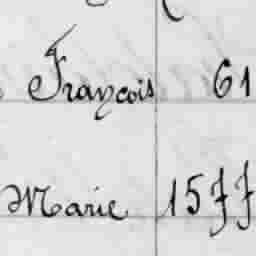 François 61
Marie 1577